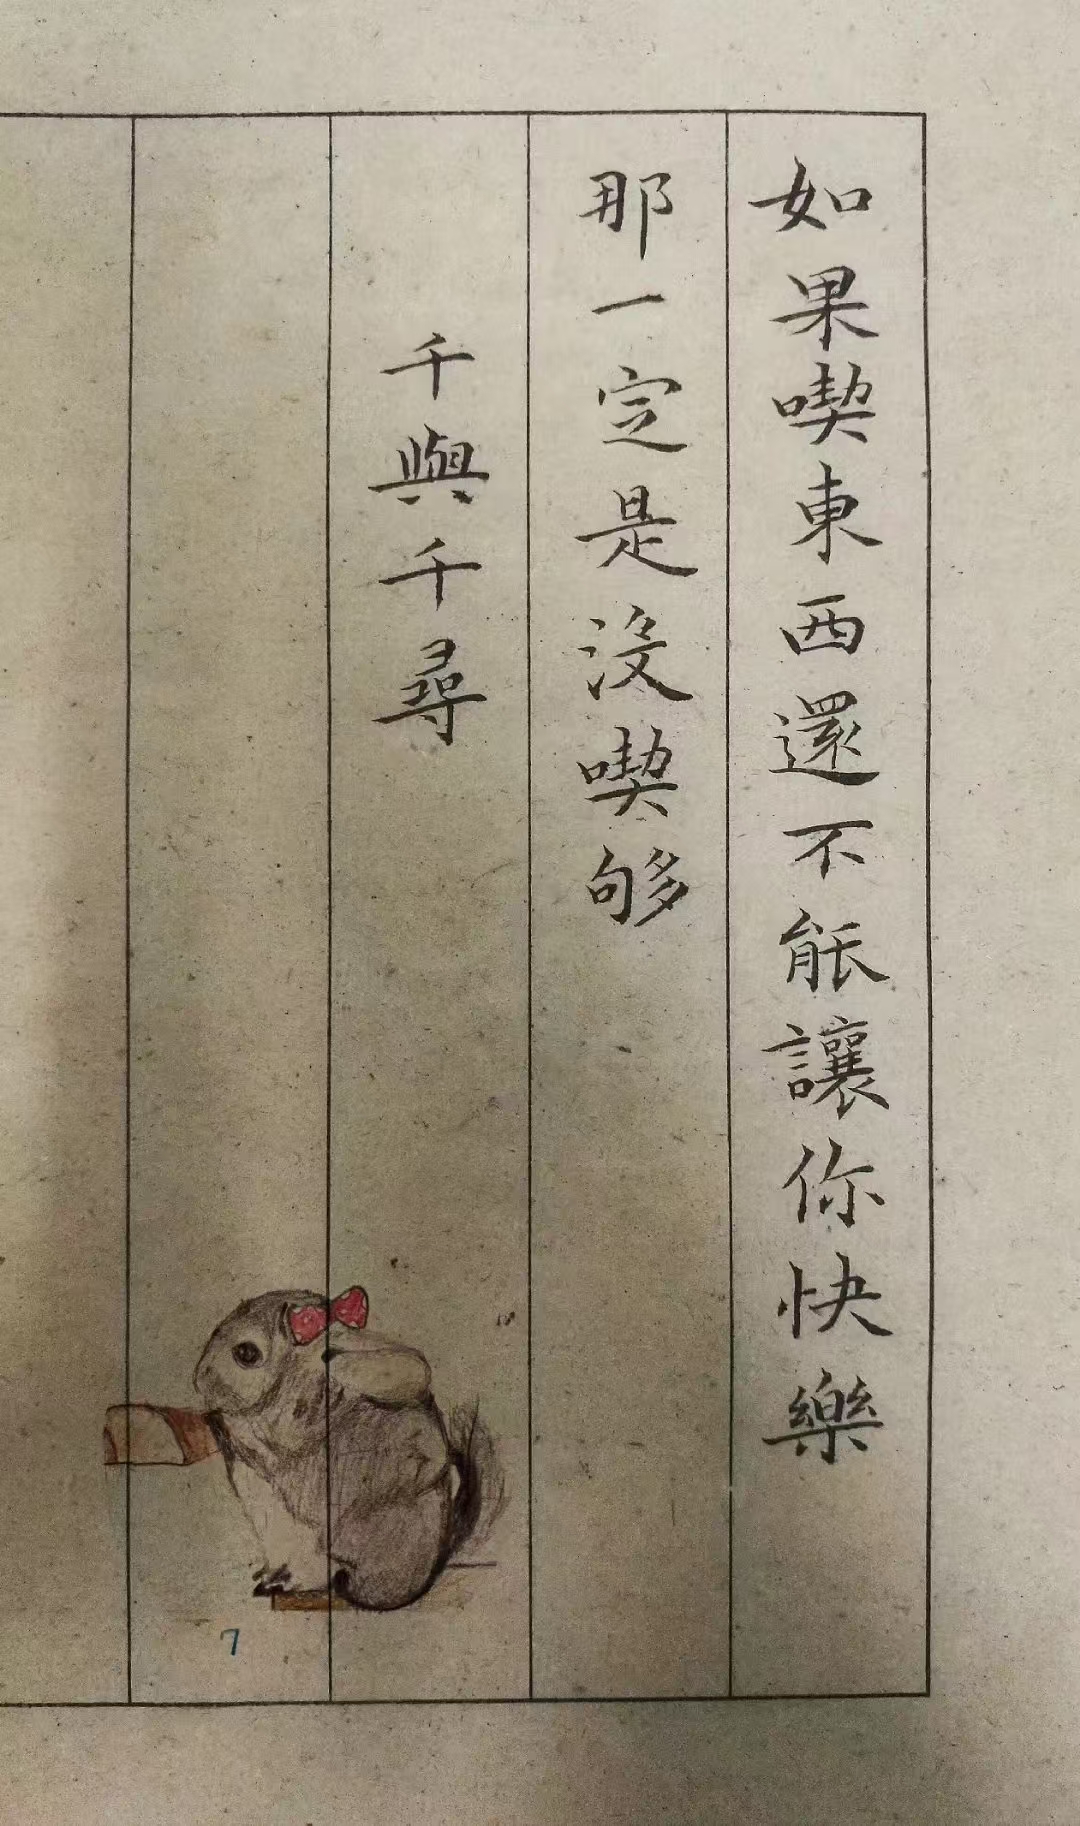 如果喫東西還不能讓你快樂
那一定是没喫够
千與千尋
7